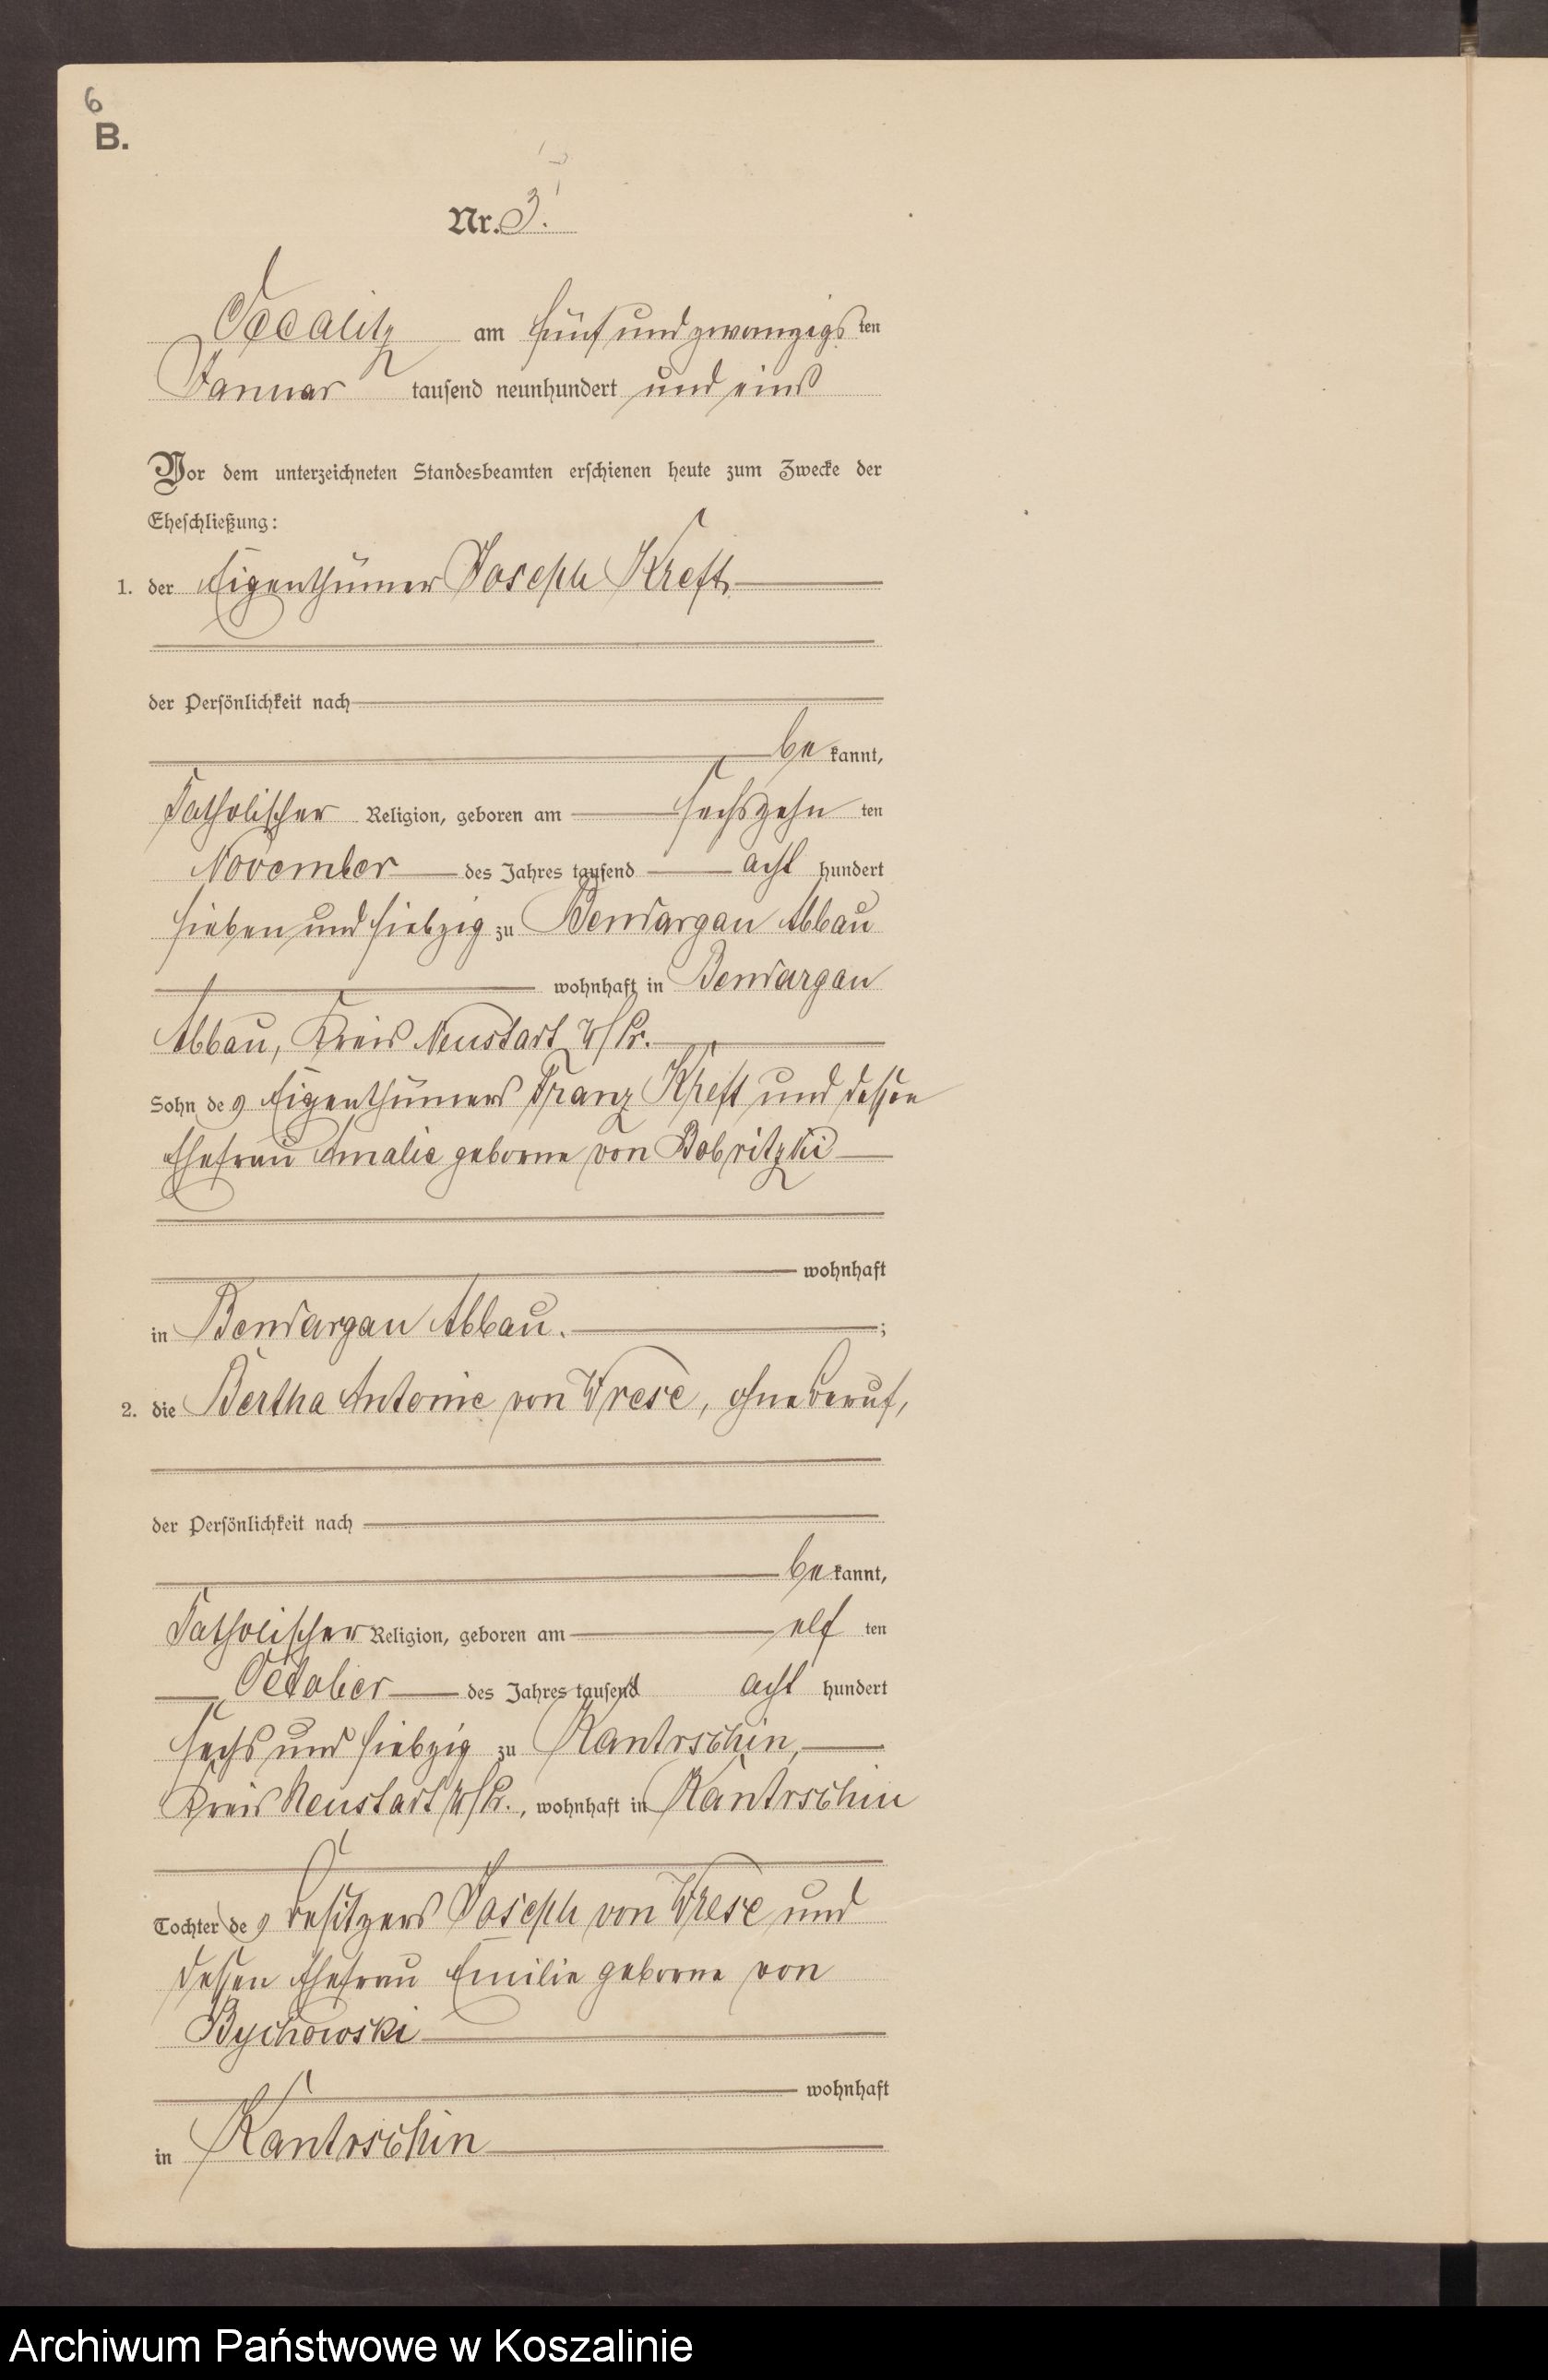 6
B.
Nr. 3.
Occalitz am fünf und zwanzigs ten
Januar tausend neunhundert und eins
Vor dem unterzeichneten Standesbeamten erschienen heute zum Zwecke der
Eheschließung:
1. der Eigenthümer Joseph Kreft
der Persönlichkeit nach
be kannt,
katholischer Religion, geboren am sechszehn ten
November des Jahres tausend acht hundert
sieben und siebzig zu Bendargau Abbau
wohnhaft in Bendargau
Abbau, Kreis Neustadt W/Pr.
Sohn de s Eigenthümers Franz Kreft und dessen
Ehefrau Amalie geborne von Bobritzki
wohnhaft
in Bendargau Abbau. ;
2. die Bertha Antonie von Wrese, ohne Beruf,
der Persönlichkeit nach
be kannt,
katholischer Religion, geboren am elf ten
October des Jahres tausend acht hundert
sechs und siebzig zu Kantrschin,
Kreis Neustadt W/Pr., wohnhaft in Kantrschin
Tochter de s Besitzers Joseph von Wrese und
dessen Ehefrau Emilie geborne von
Bychowski
wohnhaft
in Kantrschin
Archiwum Państwowe w Koszalinie